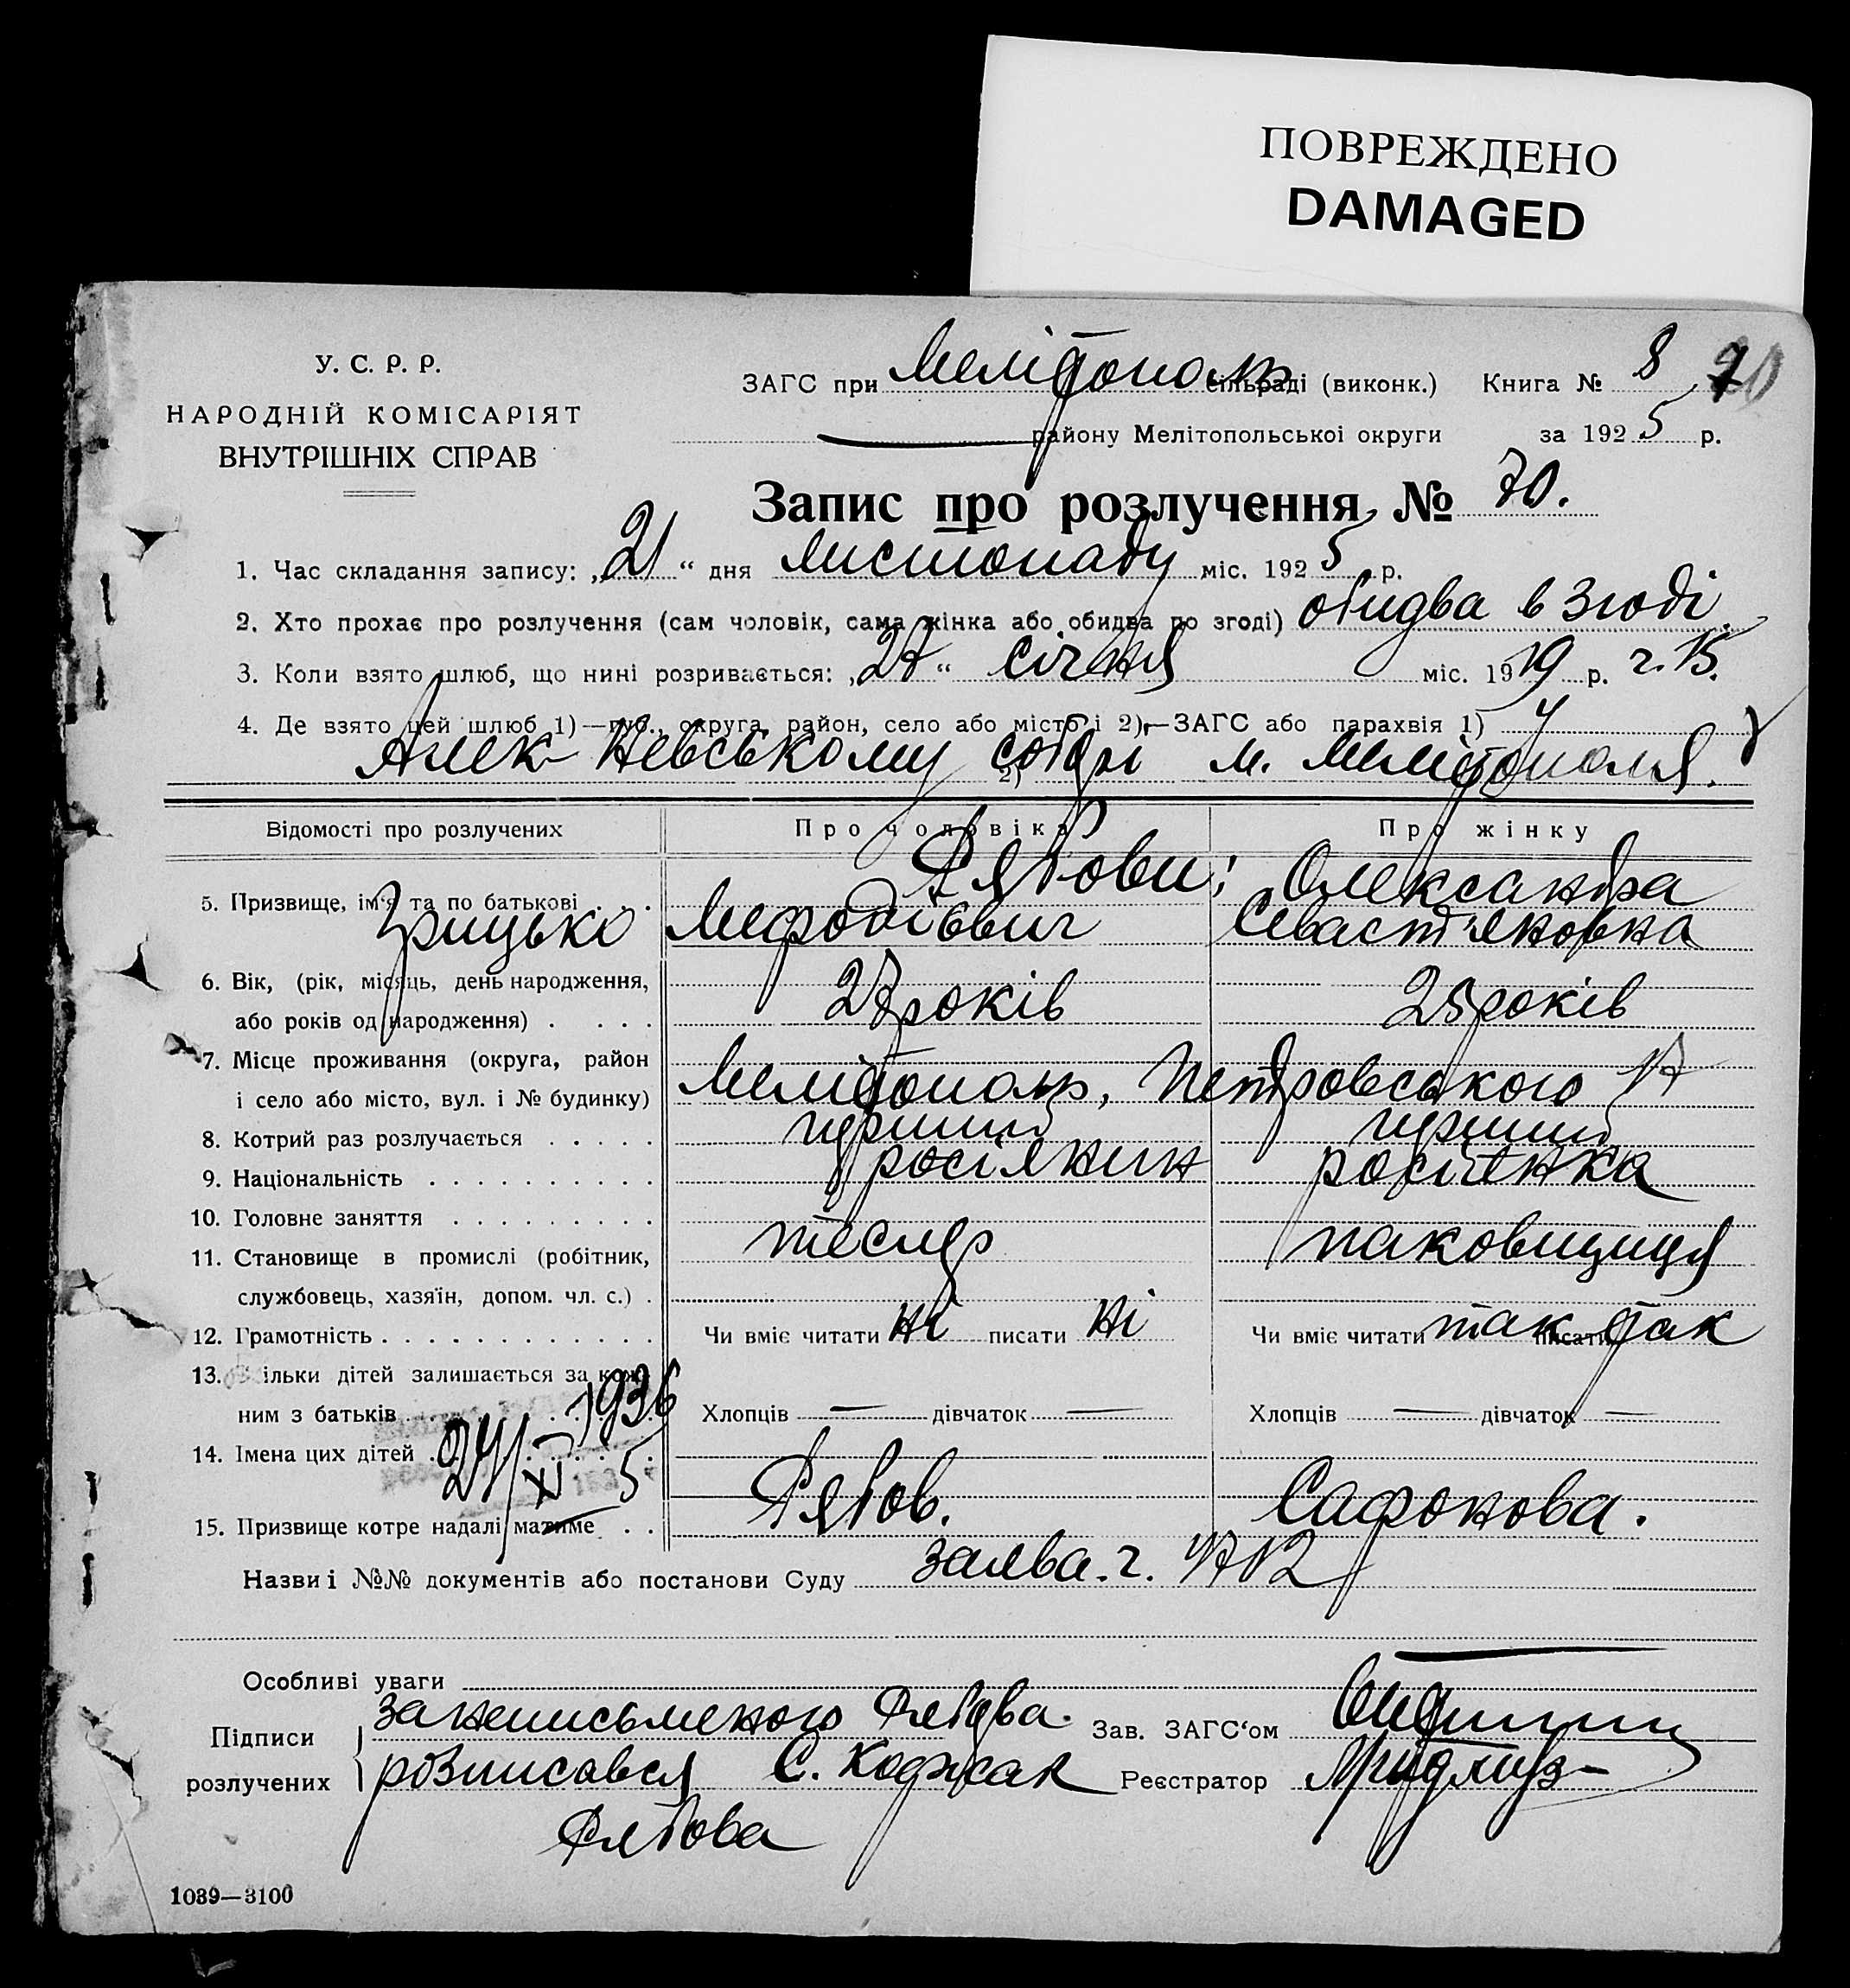 ПОВРЕЖДЕНО
DAMAGED
У. С. Р. Р.
НАРОДНІЙ КОМІСАРІЯТ
ВНУТРІШНІХ СПРАВ
ЗАГС при Мелітополь сільраді (виконк.) Книга № 8
району Мелітопольської округи за 1925 р.
Запис про розлучення № 70.
1. Час складання запису: „21“ дня листопаду міс. 1925 р.
2. Хто прохає про розлучення (сам чоловік, сама жінка або обидва по згоді) обидва в згоді.
3. Коли взято шлюб, що нині розривається: „27“ січня міс. 1919 р. ч. 15.
4. Де взято цей шлюб 1)—губ., округа, район, село або місто і 2)—ЗАГС або парахвія 1) У
Алек-Невському соборі м. Мелітополя.
2)
Відомості про розлучених Про чоловіка Про жінку
Рябови: Олександра
5. Призвище, ім'я та по батькові . . .
Грицько Мефодієвич Севаст'яновна
6. Вік, (рік, місяць, день народження,
або років од народження) . . . . 27 років 25 років
7. Місце проживання (округа, район
і село або місто, вул. і № будинку) Мелітополь, Петровського 17
8. Котрий раз розлучається . . . . . перший перший
9. Національність . . . . . . . . . . росіянин росіянка
10. Головне заняття . . . . . . . . .
11. Становище в промислі (робітник, тесляр паковщиця
службовець, хазяїн, допом. чл. с.) .
12. Грамотність . . . . . . . . . . . . Чи вміє читати ні писати ні Чи вміє читати так писати так
13. ільки дітей залишається за кож-
ним з батьків Хлопців — дівчаток — Хлопців — дівчаток —
1936
14. Імена цих дітей
24/XI 5
15. Призвище котре надалі матиме . . Рябов. Сафонова.
Назви і №№ документів або постанови Суду заява. ч. 4712
Особливі уваги
Підписи
розлучених
за неписьменого Рябова.
розписався С. Коджак
Рябова
Зав. ЗАГС'ом
Реєстратор
1039—3100